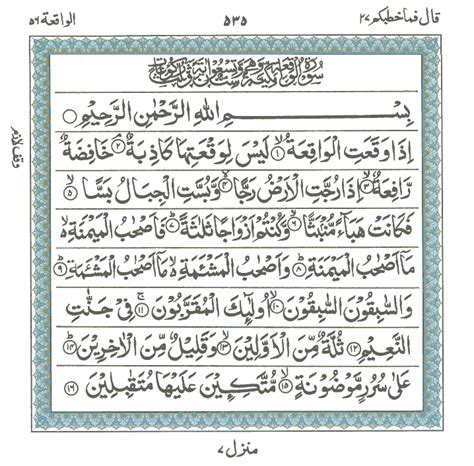 قال فماخطبكم ٢٧
٥٣٥
الواقعة ٥٦
سُوْرَةُ الْوَاقِعَةِ مَكِّيَّةٌ وَّهِيَ
بِسْمِ اللهِ الرَّحْمٰنِ الرَّحِيْمِ
اِذَا وَقَعَتِ الْوَاقِعَةُ ۙ﴿١﴾ لَيْسَ لِوَقْعَتِهَا كَاذِبَةٌ ۘ﴿٢﴾ خَافِضَةٌ
رَّافِعَةٌ ۙ﴿٣﴾ اِذَا رُجَّتِ الْاَرْضُ رَجًّا ۙ﴿٤﴾ وَّبُسَّتِ الْجِبَالُ بَسًّا ۙ﴿٥﴾
فَكَانَتْ هَبَآءً مُّنْۢبَثًّا ۙ﴿٦﴾ وَّكُنْتُمْ اَزْوَاجًا ثَلٰثَةً ؕ﴿٧﴾ فَاَصْحٰبُ الْمَيْمَنَةِ ۙ
مَاۤ اَصْحٰبُ الْمَيْمَنَةِ ؕ﴿٨﴾ وَاَصْحٰبُ الْمَشْئَمَةِ ۙ مَاۤ اَصْحٰبُ الْمَشْئَمَةِ ؕ﴿٩﴾
وَالسّٰبِقُوْنَ السّٰبِقُوْنَ ۙ﴿١٠﴾ اُولٰٓئِكَ الْمُقَرَّبُوْنَ ۚ﴿١١﴾ فِيْ جَنّٰتِ
النَّعِيْمِ ﴿١٢﴾ ثُلَّةٌ مِّنَ الْاَوَّلِيْنَ ۙ﴿١٣﴾ وَقَلِيْلٌ مِّنَ الْاٰخِرِيْنَ ؕ﴿١٤﴾
عَلٰى سُرُرٍ مَّوْضُوْنَةٍ ۙ﴿١٥﴾ مُّتَّكِـِٕيْنَ عَلَيْهَا مُتَقٰبِلِيْنَ ﴿١٦﴾
وقف لازم
منزل ٧